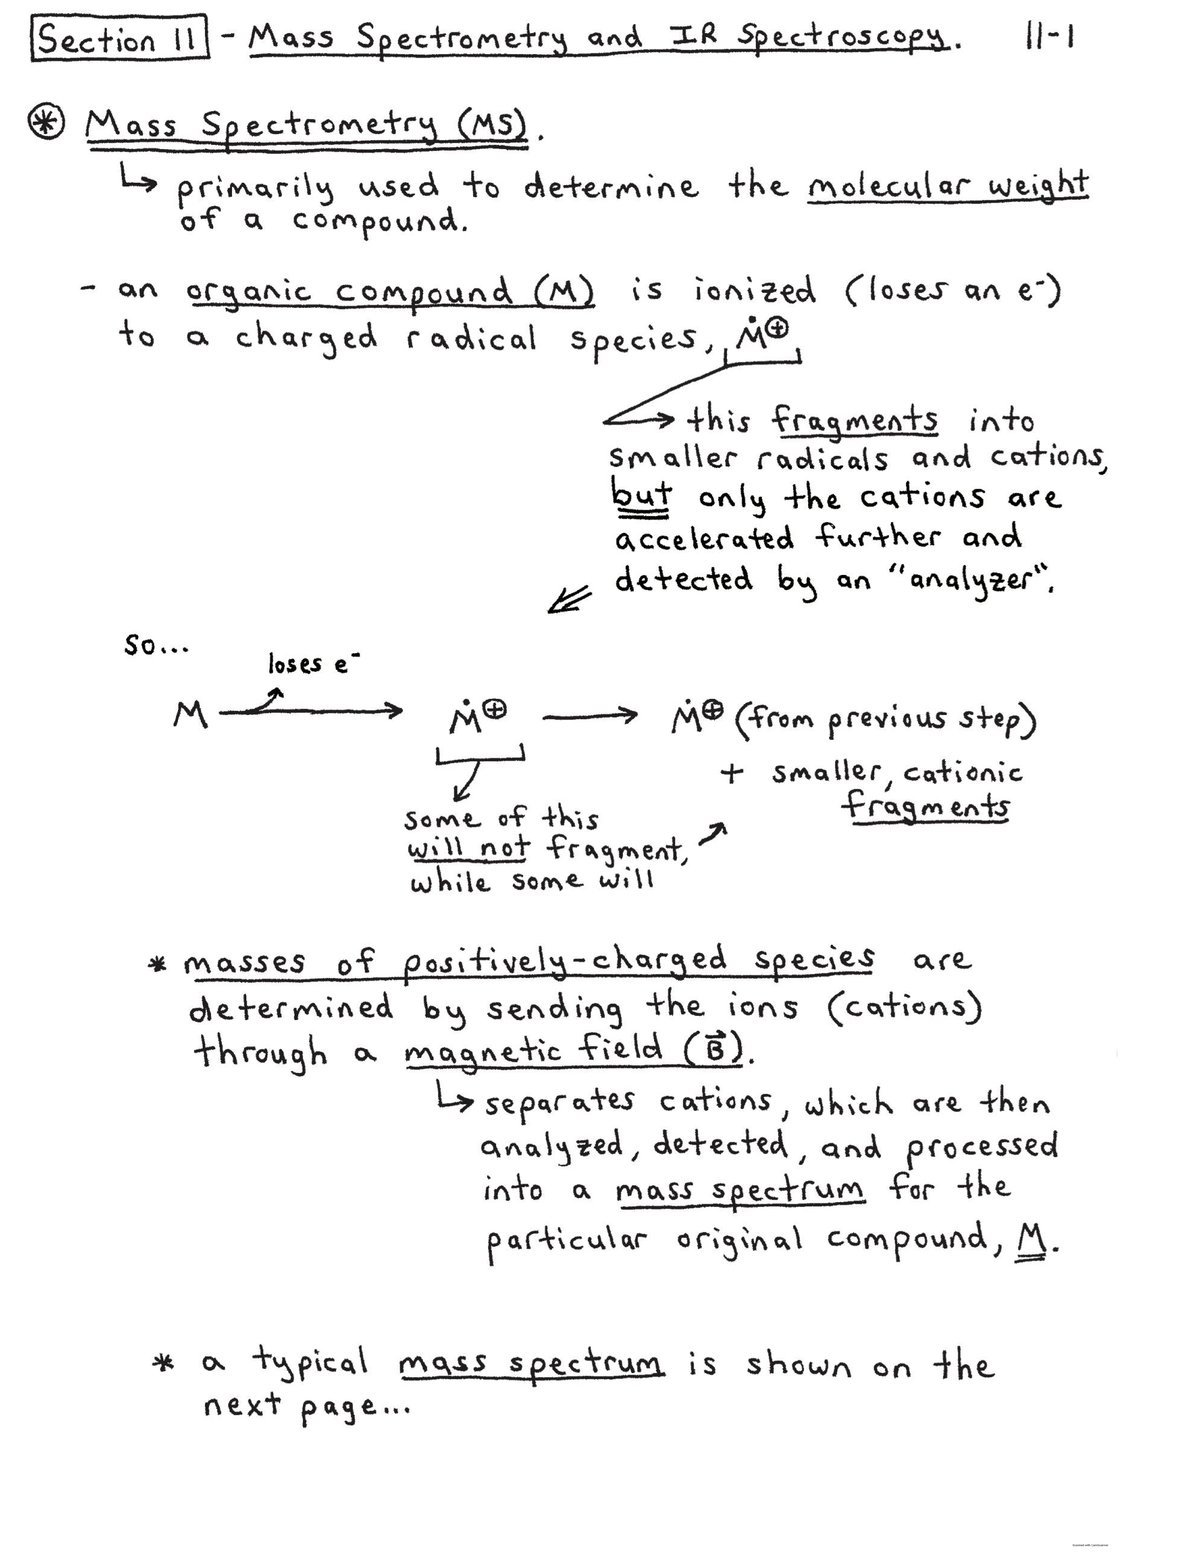 Section 11 - Mass Spectrometry and IR Spectroscopy. 11-1
⊛ Mass Spectrometry (MS).
↳ primarily used to determine the molecular weight
of a compound.
- an organic compound (M) is ionized (loses an e⁻)
to a charged radical species, Ṁ⊕
→ this fragments into
smaller radicals and cations,
but only the cations are
accelerated further and
detected by an "analyzer".
so...
loses e⁻
M → Ṁ⊕ → Ṁ⊕ (from previous step)
+ smaller, cationic
fragments
some of this
will not fragment,
while some will
* masses of positively-charged species are
determined by sending the ions (cations)
through a magnetic field (B⃗).
↳ separates cations, which are then
analyzed, detected, and processed
into a mass spectrum for the
particular original compound, M.
* a typical mass spectrum is shown on the
next page...